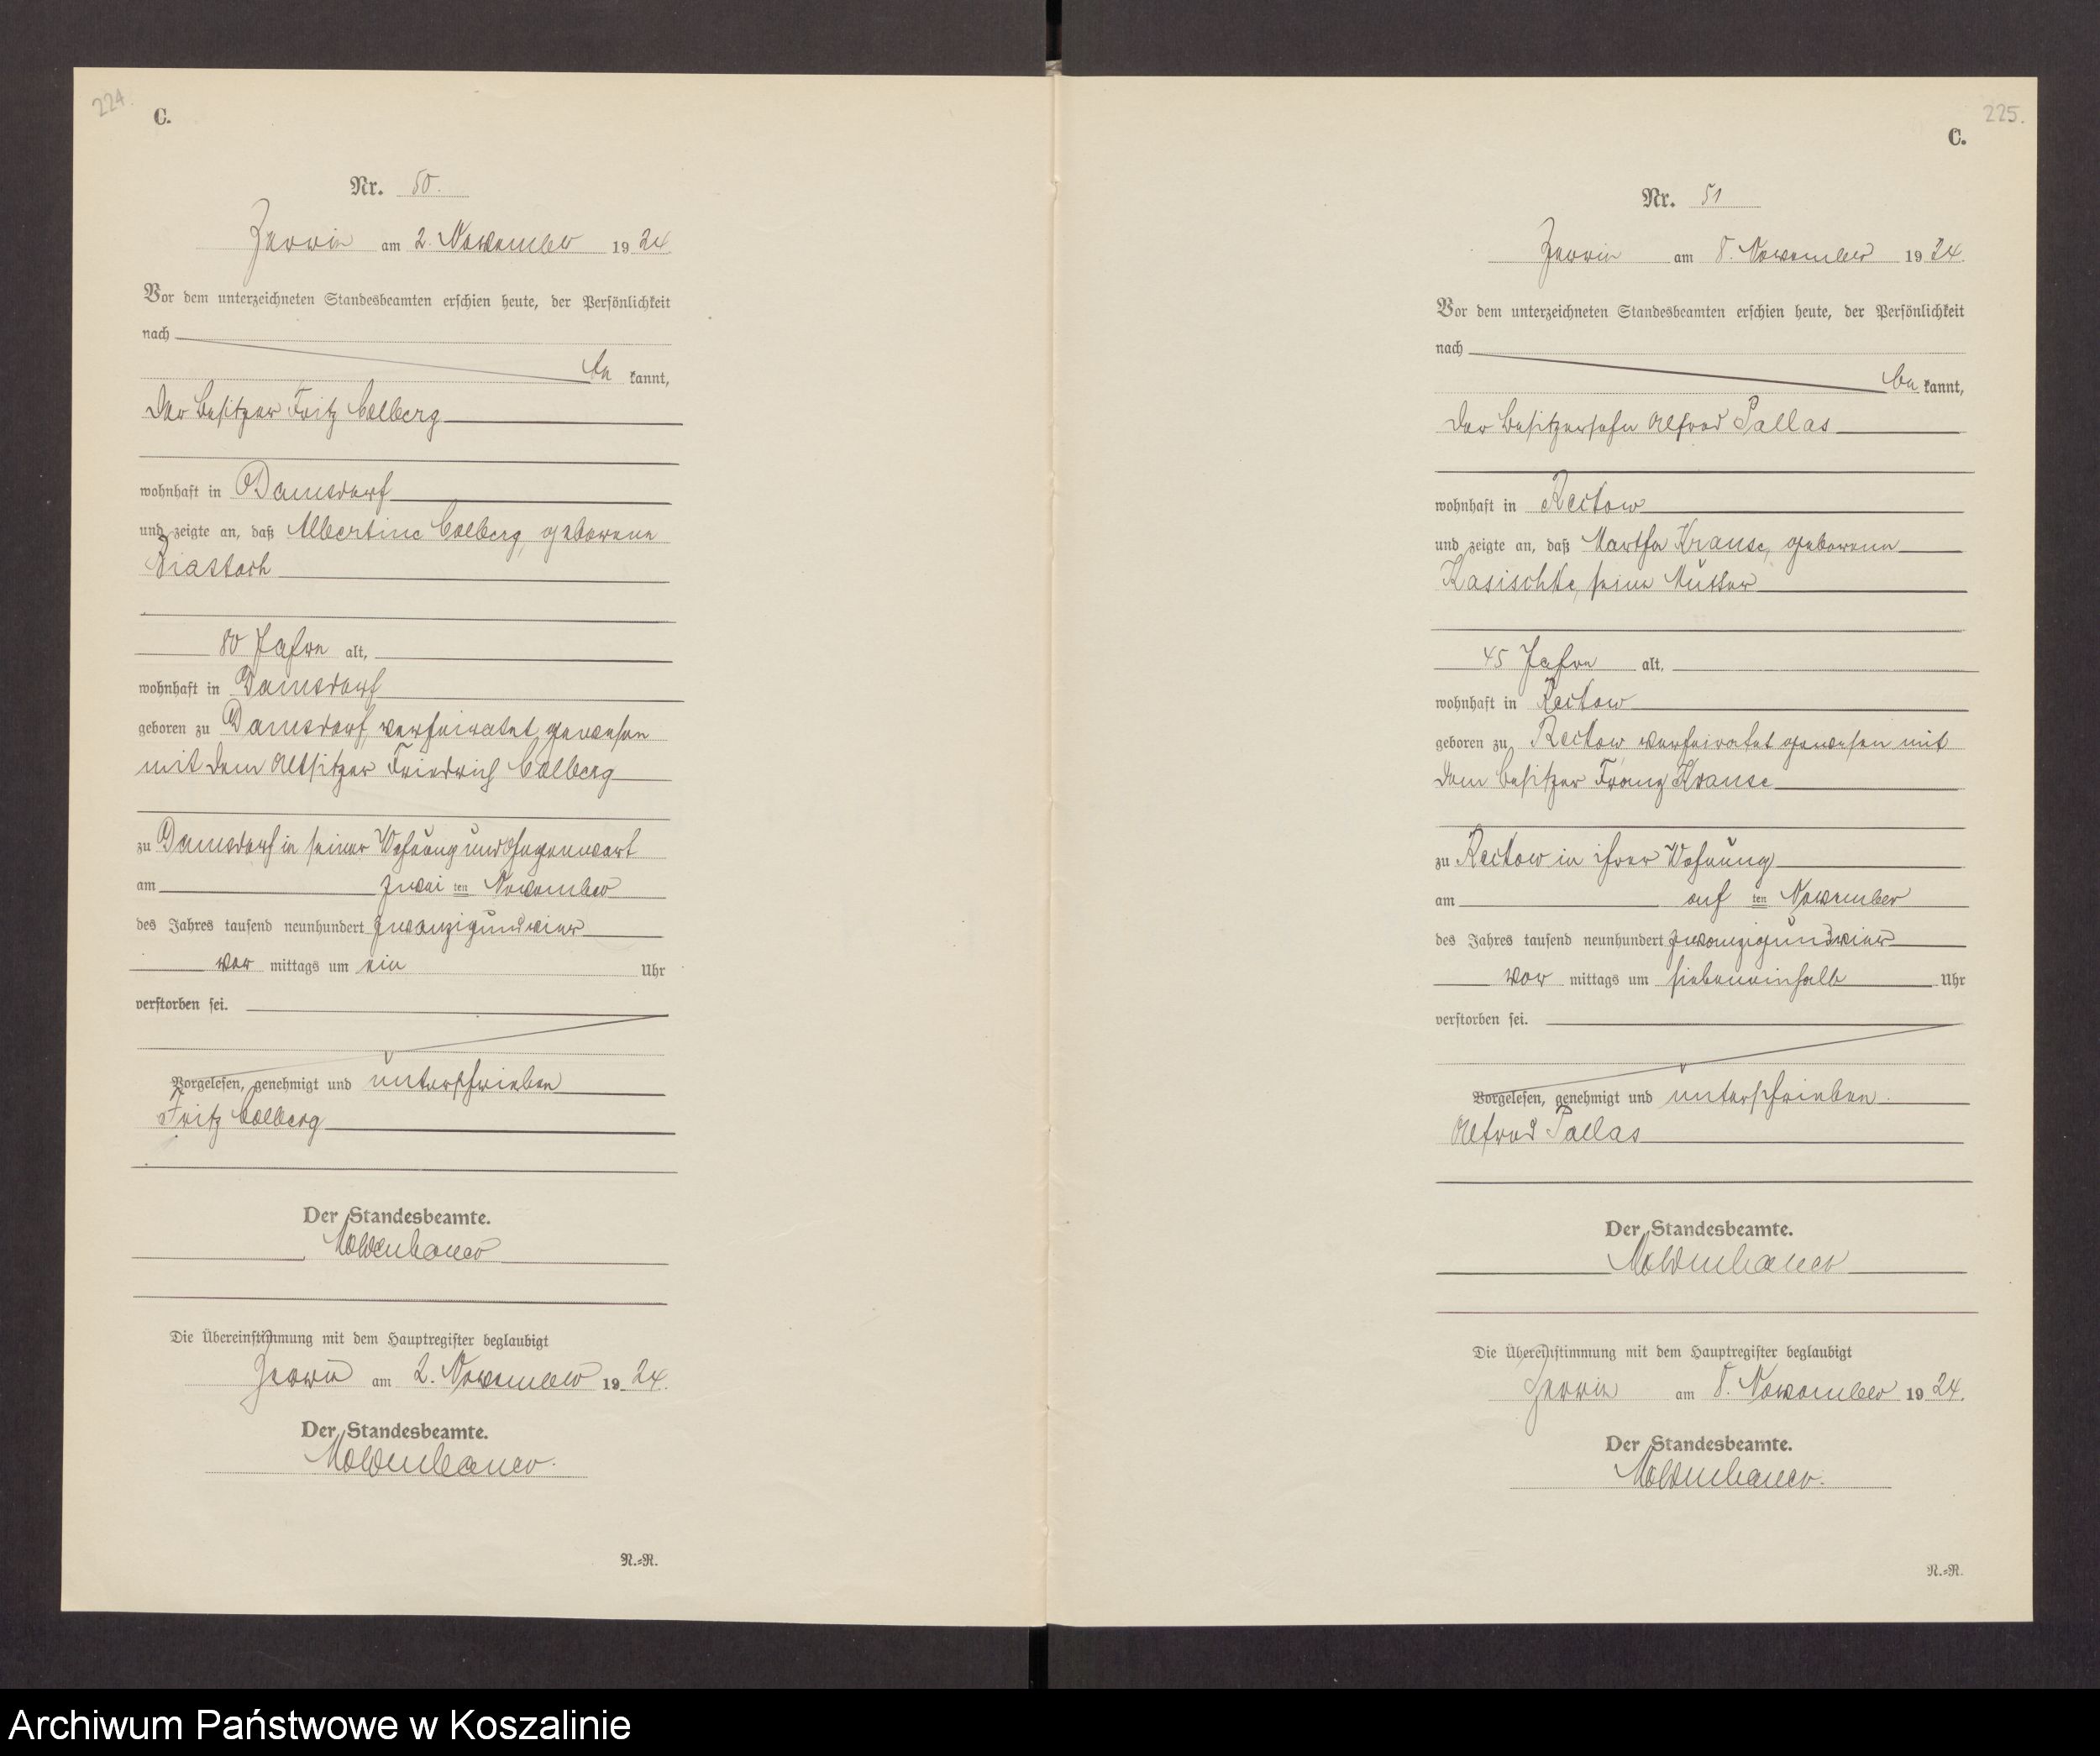 224.
C.
Nr. 50.
Jerrin am 2. November 1924
Vor dem unterzeichneten Standesbeamten erschien heute, der Persönlichkeit
nach
be kannt,
der Besitzer Fritz Colberg
wohnhaft in Damsdorf
und zeigte an, daß Albertine Colberg, geborene
80 Jahre alt,
wohnhaft in Damsdorf
geboren zu Damsdorf, verheiratet gewesen
mit dem Altsitzer Friedrich Colberg
zu Damsdorf in seiner Wohnung und Gegenwart
am zwei ten November
des Jahres tausend neunhundert zwanzigundvier
vor mittags um ein Uhr
verstorben sei.
Vorgelesen, genehmigt und unterschrieben
Fritz Colberg
Der Standesbeamte.
Moldenhauer
Die Übereinstimmung mit dem Hauptregister beglaubigt
Jerrin am 2. November 1924.
Der Standesbeamte.
Moldenhauer.
N.=R.
225.
C.
Nr. 51
Jerrin am 8. November 1924.
Vor dem unterzeichneten Standesbeamten erschien heute, der Persönlichkeit
nach
be kannt,
der Besitzersohn Alfred Pallas
wohnhaft in Reckow
und zeigte an, daß Martha Krause, geborene
Kasischke, seine Mutter
45 Jahre alt,
wohnhaft in Reckow
geboren zu Reckow verheiratet gewesen mit
dem Besitzer Franz Krause
zu Reckow in ihrer Wohnung
am acht ten November
des Jahres tausend neunhundert zwanzigundvier
vor mittags um siebeneinhalb Uhr
verstorben sei.
Vorgelesen, genehmigt und unterschrieben.
Alfred Pallas
Der Standesbeamte.
Moldenhauer
Die Übereinstimmung mit dem Hauptregister beglaubigt
Jerrin am 8. November 1924.
Der Standesbeamte.
Moldenhauer.
N.=R.
Archiwum Państwowe w Koszalinie